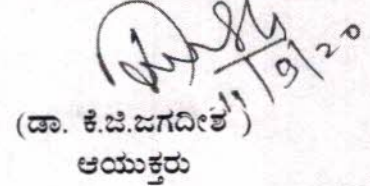 11/9/20
(ಡಾ. ಕೆ.ಜಿ.ಜಗದೀಶ )
ಆಯುಕ್ತರು